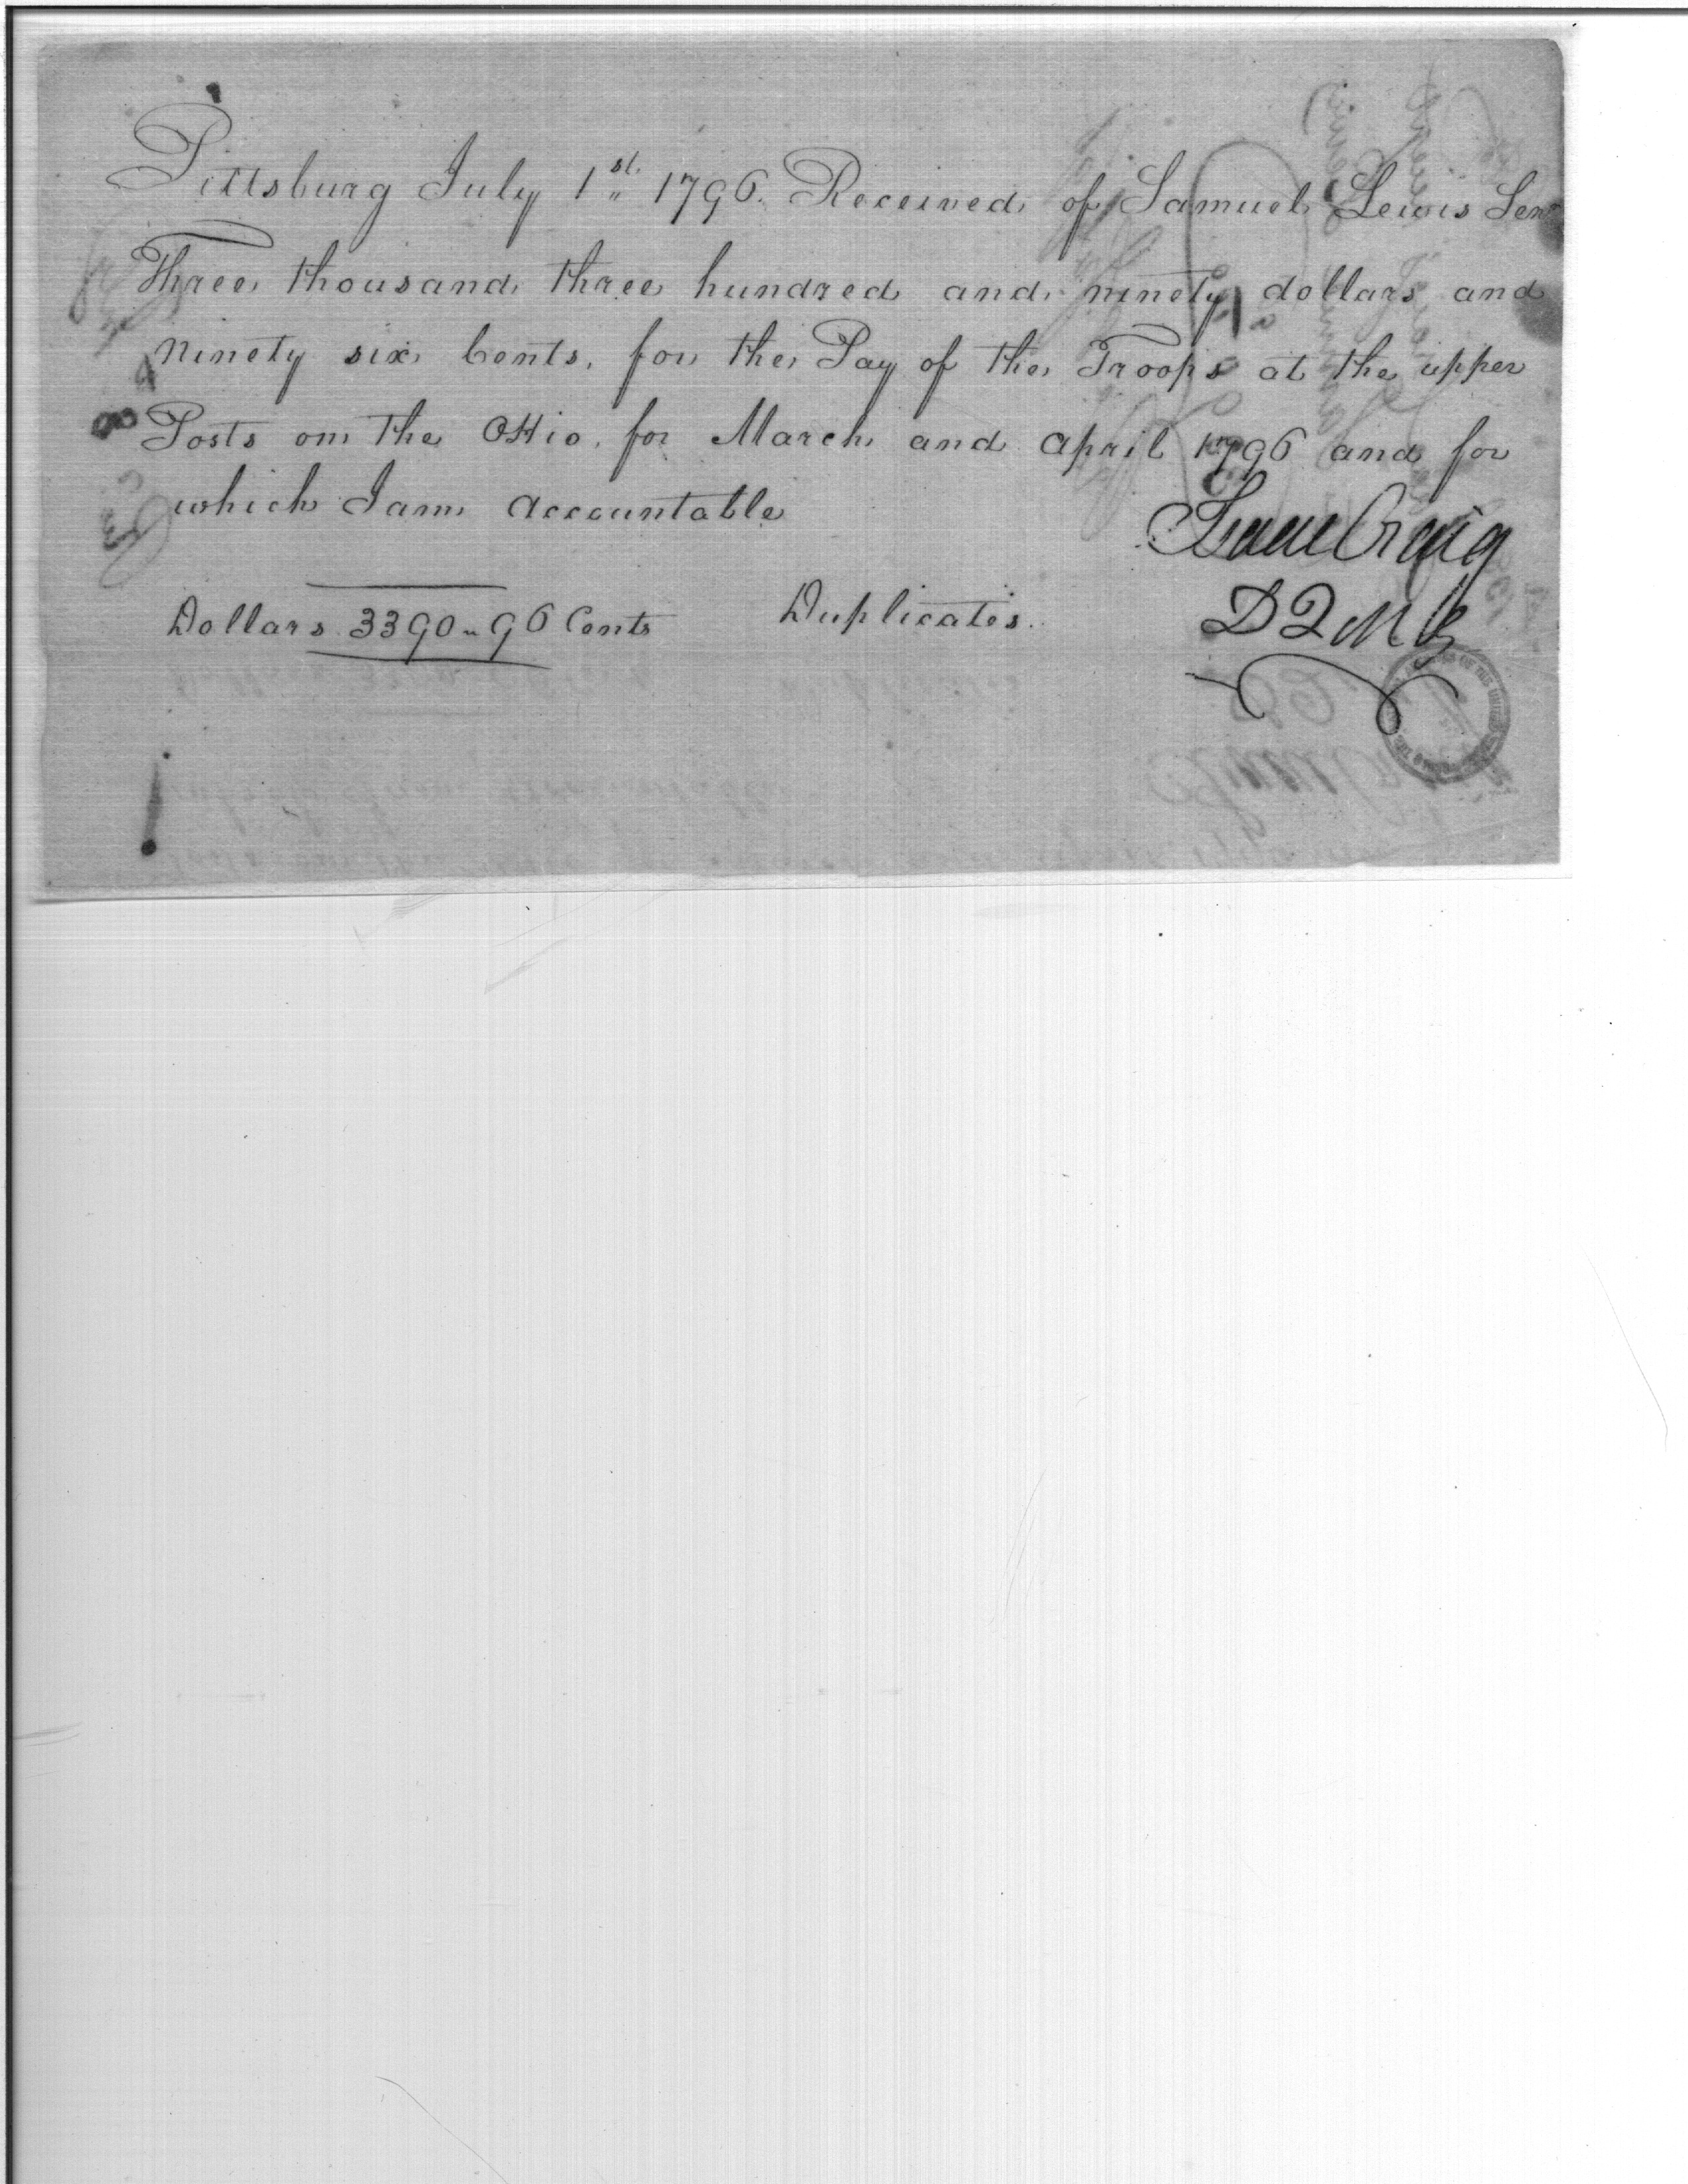 Pittsburg July 1st. 1796. Received of Samuel Lewis Senr
Three thousand three hundred and ninety dollars and
ninety six Cents, for the Pay of the Troops at the upper
Posts on the OHio, for March and april 1796 and for
which I am accountable
Isaac Craig
Dollars 3390 " 96 Cents Duplicates.
D Q M G